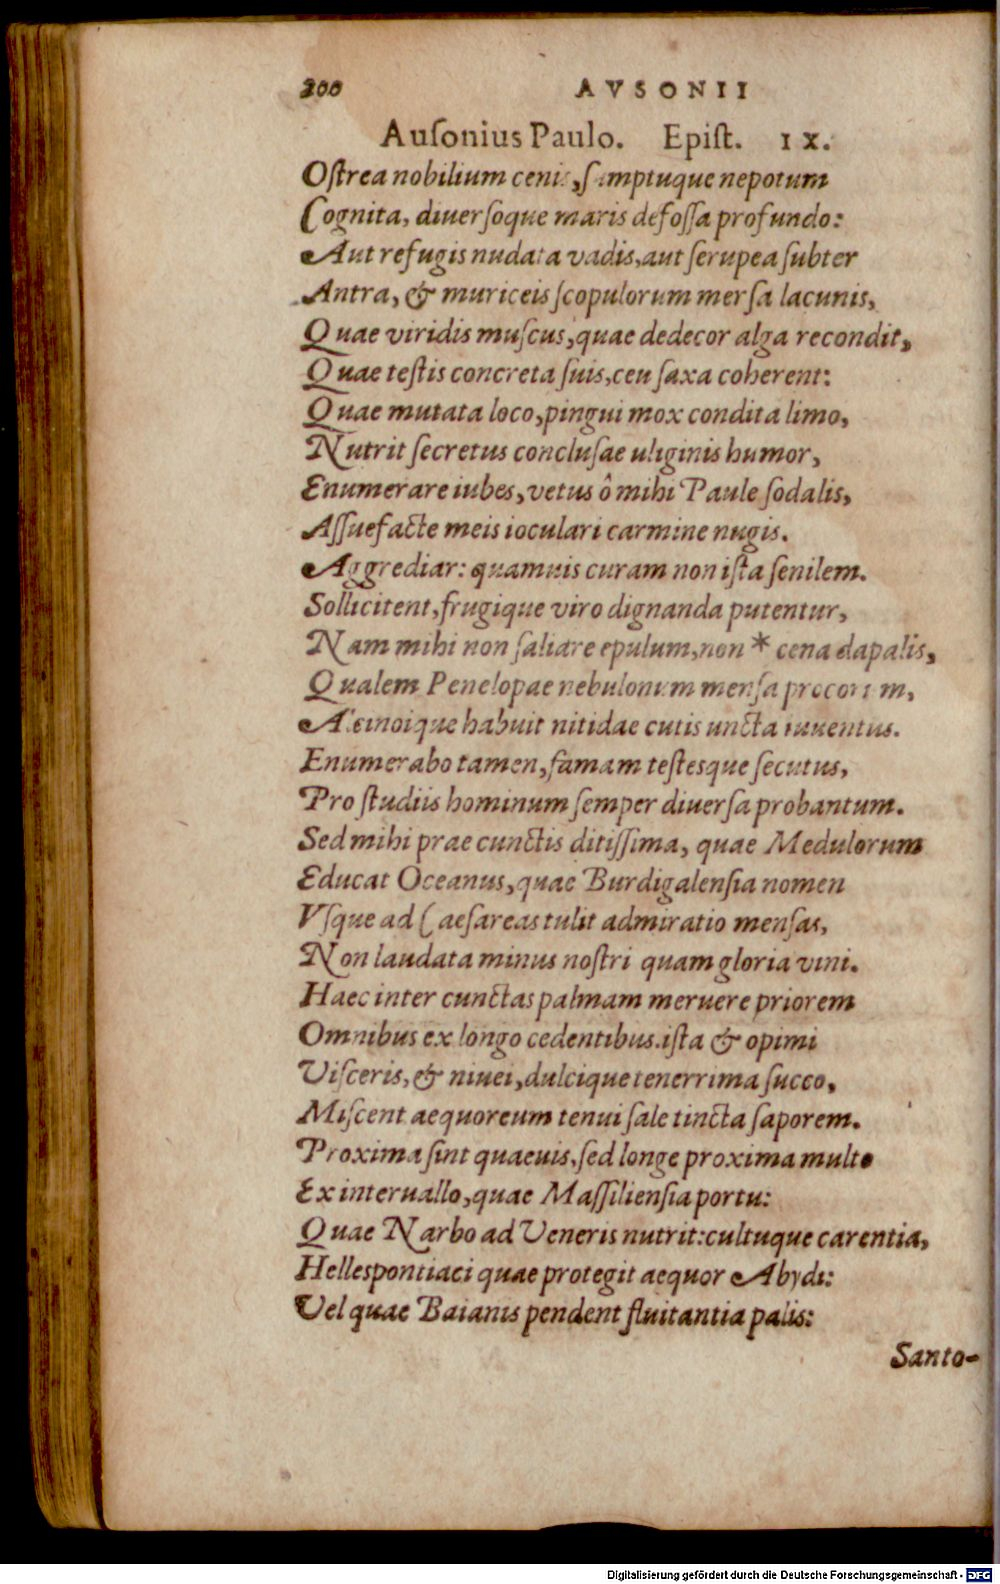 200 AVSONII
Auſonius Paulo. Epiſt. IX.
Oſtrea nobilium cenis, ſumptuque nepotum
Cognita, diuerſoque maris defoſſa profundo:
Aut refugis nudata vadis, aut ſcrupea ſubter
Antra, & muriceis ſcopulorum merſa lacunis,
Quae viridis muſcus, quae dedecor alga recondit,
Quae teſtis concreta ſuis, ceu ſaxa coherent:
Quae mutata loco, pingui mox condita limo,
Nutrit ſecretus concluſae uliginis humor,
Enumerare iubes, vetus ô mihi Paule ſodalis,
Aſſuefacte meis ioculari carmine nugis.
Aggrediar: quamuis curam non iſta ſenilem.
Sollicitent, frugique viro dignanda putentur,
Nam mihi non ſaliare epulum, non * cena dapalis,
Qualem Penelopae nebulonum menſa procorum,
Alcinoique habuit nitidae cutis uncta iuuentus.
Enumerabo tamen, famam teſtesque ſecutus,
Pro ſtudiis hominum ſemper diuerſa probantum.
Sed mihi prae cunctis ditiſſima, quae Medulorum
Educat Oceanus, quae Burdigalenſia nomen
Vſque ad Caeſareas tulit admiratio menſas,
Non laudata minus noſtri quam gloria vini.
Haec inter cunctas palmam meruere priorem
Omnibus ex longo cedentibus. iſta & opimi
Viſceris, & niuei, dulcique tenerrima ſucco,
Miſcent aequoreum tenui ſale tincta ſaporem.
Proxima ſint quaeuis, ſed longe proxima multo
Ex interuallo, quae Maſſilienſia portu:
Quae Narbo ad Veneris nutrit: cultuque carentia,
Hellespontiaci quae protegit aequor Abydi:
Vel quae Baianis pendent fluitantia palis:
Santo-
Digitalisierung gefördert durch die Deutsche Forschungsgemeinschaft - DFG